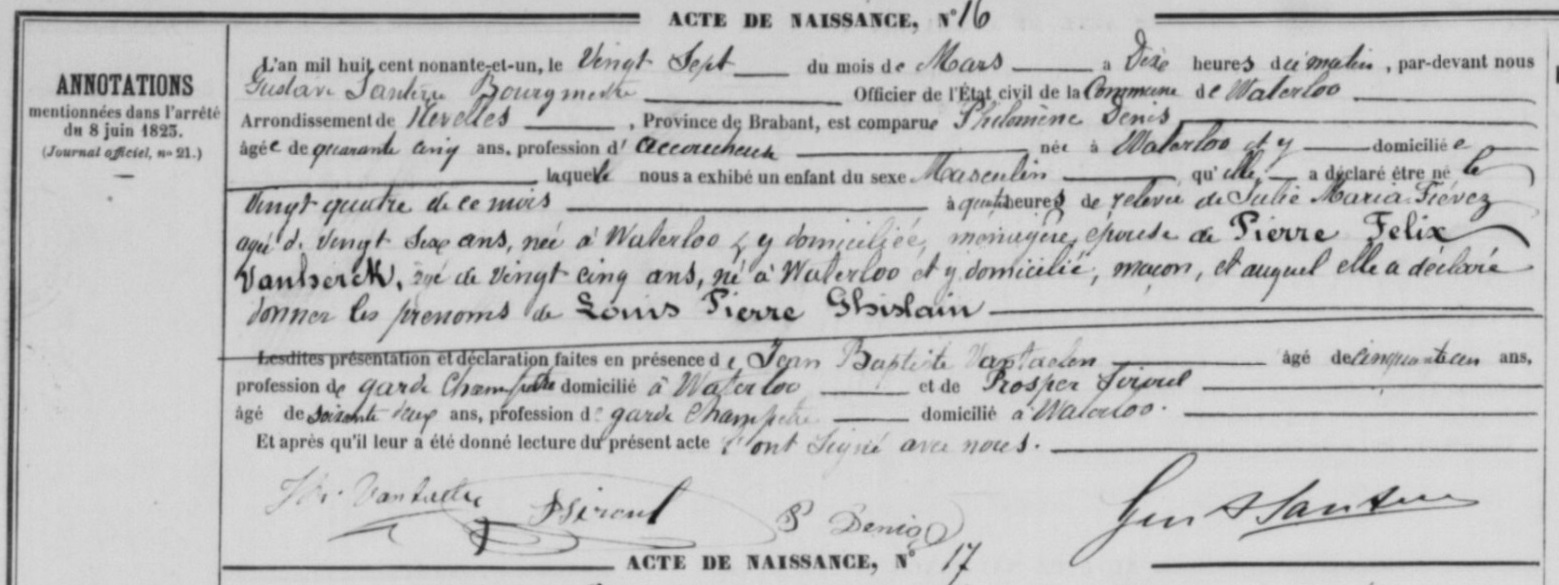 ACTE DE NAISSANCE, N° 16
ANNOTATIONS
mentionnées dans l'arrêté
du 8 juin 1823.
(Journal officiel, no 21.)
L'an mil huit cent nonante-et-un, le Vingt Sept du mois de Mars a Dix heures du matin, par-devant nous
Gustave Bourgmestre Officier de l'État civil de la Commune de Waterloo
Arrondissement de Nivelles, Province de Brabant, est comparue Philomène Denis
âgée de quarante cinq ans, profession d' accoucheuse née à Waterloo et y domiciliée
laquelle nous a exhibé un enfant du sexe Masculin qu'elle a déclaré être né le
Vingt quatre de ce mois à quatre heures de relevée de Julie Maria Fiévez
agée de Vingt Six ans, née à Waterloo & y domiciliée, ménagère, épouse de Pierre Felix
Vanherck, agé de vingt cinq ans, né à Waterloo et y domicilié, maçon, et auquel elle a declaré
donner les prenoms de Louis Pierre Ghislain
Lesdites présentation et déclaration faites en présence de Jean Baptiste âgé de cinquante un ans,
profession de garde Champetre domicilié à Waterloo et de Prosper Siroul
âgé de soixante deux ans, profession de garde Champetre domicilié à Waterloo.
Et après qu'il leur a été donné lecture du présent acte ont Signé avec nous.
PSiroul P Denis
ACTE DE NAISSANCE, N° 17